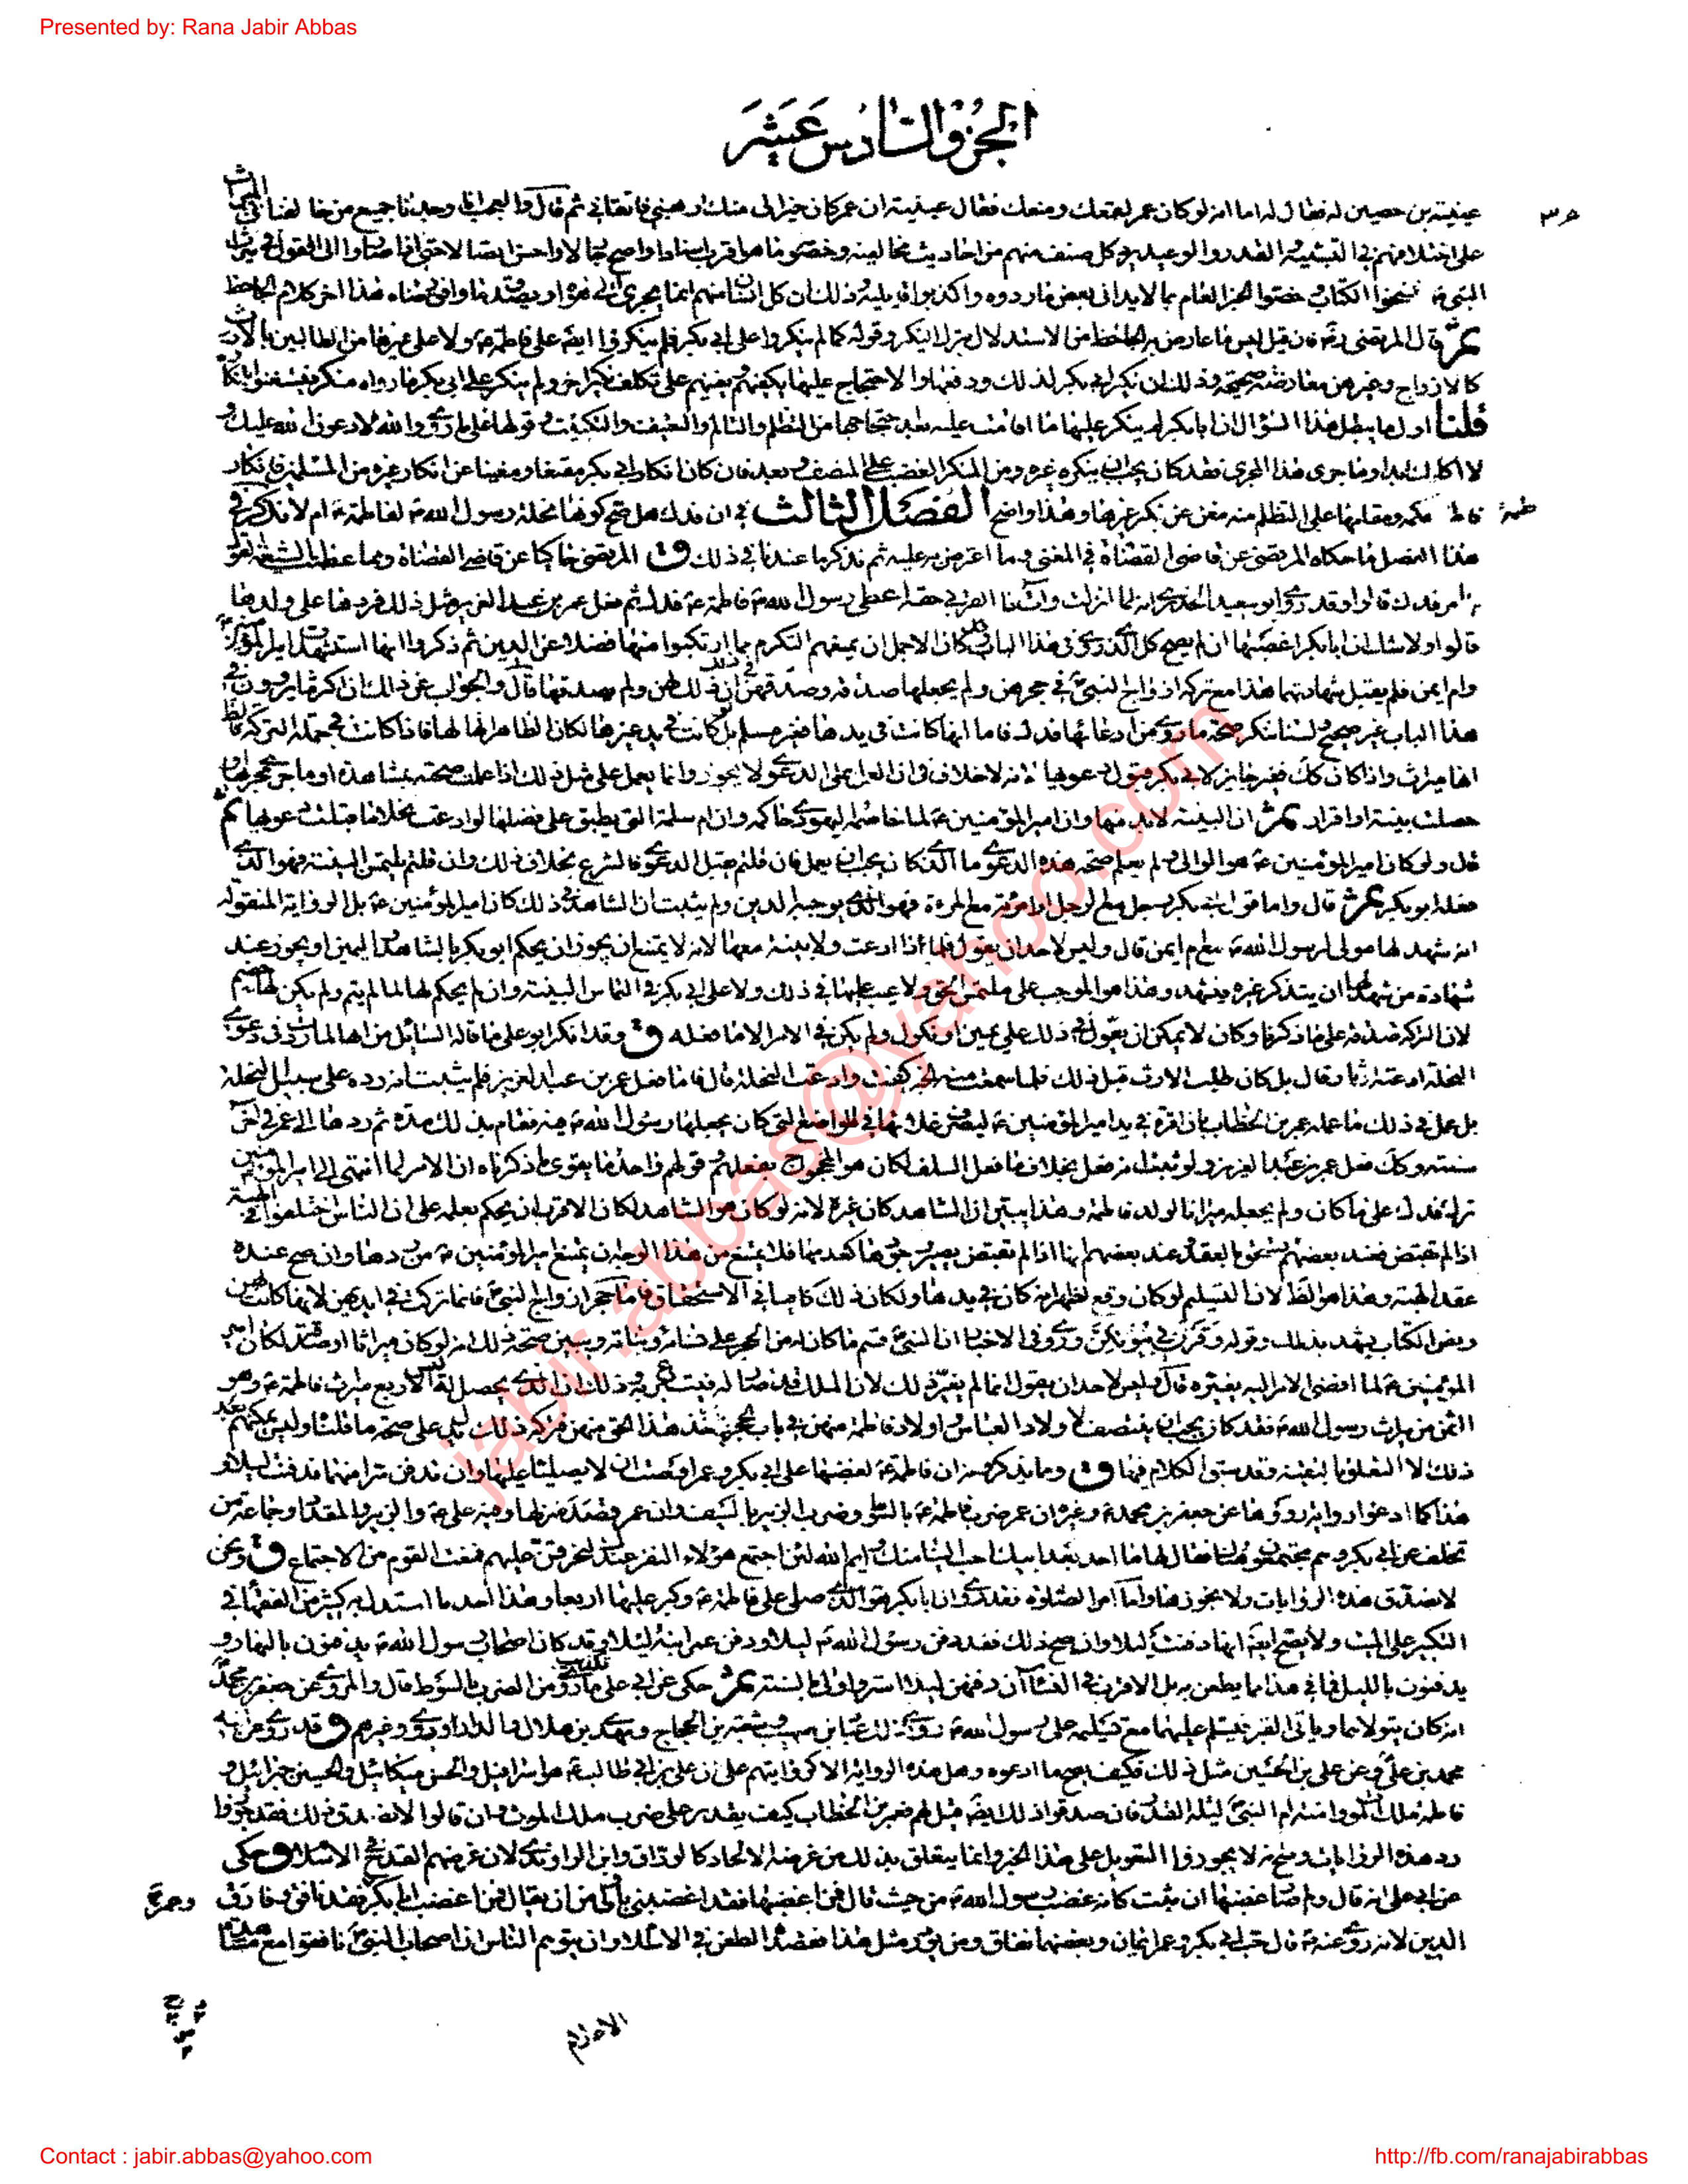 Presented by: Rana Jabir Abbas
الجزو السادس عشر
عيينة بن حصين له فقال له اما انه لو كان عمر لقمعك ومنعك فقال عيينة ان عمر كان خيرا لى منك ارهبنى فاتقانى ثم قال والعجب انا وجدنا جميع من خالفنا فى الميراث
على اختلافهم فى التشبيه والقدر والوعيد يرد كل صنف منهم من احاديث مخالفيه وخصومه ما هو اقرب اسنادا واصح رجالا واحسن اتصالا حتى اذا صاروا الى القول فى ميراث
النبى نسخوا الكتاب وخصوا الخبر العام بما لا يدانى بعض ما ردوه واكذبوا قائليه وذلك ان كل انسان منهم انما يجرى الى هواه ويصدق ما وافق رضاه هذا اخر كلام الجاحظ
قال المرتضى ره فان قيل ليس ما عارض به الجاحظ من الاستدلال بترك النكير وقوله كما لم ينكروا على ابى بكر فلم ينكروا ايضا على فاطمة ولا على غيرها من الطالبين بالارث
كالازواج وغيرهن معارضة صحيحة وذلك ان نكير ابى بكر لذلك ودفعها والاحتجاج عليها يكفيهم ويغنيهم عن تكلف نكير اخر ولم ينكر على ابى بكر ما رواه منكر فيستغنوا بانكاره
قلنا اول ما يبطل هذا السؤال ان ابا بكر لم ينكر عليها ما اقامت عليه بعد احتجاجها من التظلم والتألم والتعنيف والتبكيت وقولها على ما روى والله لادعون الله عليك و
لا اكلمك ابدا وما جرى هذا المجرى فقد كان يجب ان ينكره غيره ومن المنكر الغضب على المنصف وبعد فان كان انكار ابى بكر مقنعا ومغنيا عن انكار غيره من المسلمين فانكار
فاطمة حكمه ومقامها على التظلم منه مغن عن نكير غيرها وهذا واضح الفصل الثالث فى ان فدك هل صح كونها نحلة رسول الله ص لفاطمة ع ام لا نذكر فى
هذا الفصل ما حكاه المرتضى عن قاضى القضاة فى المغنى وما اعترض به عليه ثم نذكر ما عندنا فى ذلك ق المرتضى حاكيا عن قاضى القضاة ومما عظمت الشيعة القول
فى امر فدك قالوا وقد روى ابو سعيد الخدرى انه لما انزلت وآت ذا القربى حقه اعطى رسول الله ص فاطمة ع فدك ثم فعل عمر بن عبد العزيز مثل ذلك فردها على ولدها
قالوا ولا شك ان ابا بكر اغضبها ان لم يصح كل الذى روى فى هذا الباب وقد كان الاجمل ان يمنعهم التكرم مما ارتكبوا منها فضلا عن الدين ثم ذكروا انها استشهدت امير المؤمنين
وام ايمن فلم يقبل شهادتهما هذا مع تركه ازواج النبى فى حجرهن ولم يجعلها صدقة وصدقهن فى ذلك ان ذلك لهن ولم يصدقها قال والجواب عن ذلك ان اكثر ما يروون فى
هذا الباب غير صحيح ولسنا ننكر صحة ما روى من ادعائها فدك فاما انها كانت فى يدها فغير مسلم بل لو كانت فى يدها لكان الظاهر انها لها فاذا كانت فى جملة التركة فالظاهر
انها ميراث واذا كان كذلك فغير جائز لابى بكر قبول دعويها لانه لا خلاف فى ان العمل على الدعوى لا يجوز وانما يعمل على مثل ذلك اذا علمت صحته بمشاهدة او ما جرى مجراها او
حصلت بينة او اقرار ثم ان البينة لا بد منها وان امير المؤمنين ع لما خاصمه اليهودى حاكمه وان ام سلمة التى يطبق على فضلها لو ادعت نحلا ما قبلت دعويها ثم
قال ولو كان امير المؤمنين ع هو الوالى ولم يعلم صحة هذه الدعوى ما الذى كان يجب ان يعمل فان قلتم يقبل الدعوى فالشرع بخلاف ذلك وان قلتم يلتمس البينة فهو الذى
فعله ابو بكر ثم قال واما قول ابى بكر رجل مع الرجل او امرأة مع المرءة فهو الذى يوجبه الدين ولم يثبت ان الشاهد فى ذلك كان امير المؤمنين ع بل الرواية المنقولة
انه شهد لها مولى لرسول الله ص مع ام ايمن قال وليس لاحد ان يقول فلماذا ادعت ولا بينة معها لانه لا يمتنع ان يجوز ان يحكم ابو بكر بالشاهد واليمين او يجوز عند
شهادة من شهد لها ان يتذكر غيره فيشهد وهذا هو الموجب على ملتمس الحق ولا عيب عليها فى ذلك ولا على ابى بكر فى التماس البينة وان لم يحكم لها لما لم يتم ولم يكن لها خصم
لان التركة صدقة على ما ذكرنا وكان لا يمكن ان يعول فى ذلك على يمين او نكول ولم يكن فى الامر الا ما فعله ق وقد انكر ابو على ما قاله السائل من انها لما ردت فى دعوى
النحلة ادعته ارثا وقال بل كان طلب الارث قبل ذلك فلما سمعت منه الخبر كفت وادعت النحلة قال فاما فعل عمر بن عبد العزيز فلم يثبت انه رده على سبيل النحلة
بل عمل فى ذلك ما عمله عمر بن الخطاب بان اقره فى يد امير المؤمنين ع ليصرف غلاتها فى المواضع التى كان يجعلها رسول الله ص فيه فقام بذلك مدة ثم ردها الى عمر فى اخر
سنته وكذلك فعل عمر بن عبد العزيز ولو ثبت انه فعل بخلاف ما فعل السلف لكان هو المحجوج بفعلهم وقولهم واحد ما يقوى ما ذكرناه ان الامر لما انتهى الى امير المؤمنين
ترك فدك على ما كان ولم يجعله ميراثا لولد فاطمة وهذا يبين ان الشاهد كان غيره لانه لو كان هو الشاهد لكان الاقرب ان يحكم بعلمه على ان الناس اختلفوا فى الهبة
اذا لم تقبض فعند بعضهم يستحق بالعقد وعند بعضهم انها اذا لم تقبض يصير وجودها كعدمها فلا يمتنع من هذا الوجه ان يمتنع امير المؤمنين ع من ردها وان صح عنده
عقد الهبة وهذا هو الظاهر لان التسليم لو كان وقع لظهر انه كان فى يدها ولكان ذلك كافيا فى الاستحقاق فاما حجر ازواج النبى فانما تركت فى ايديهن لانها كانت لهن
ونص الكتاب يشهد بذلك وقوله وقرن فى بيوتكن وروى فى الاخبار ان النبى قسم ما كان له من الحجر على نسائه وبناته ويبين صحة ذلك انه لو كان ميراثا او صدقة لكان امير
المؤمنين ع لما افضى الامر اليه يغيره قال وليس لاحد ان يقول انما لم يغير ذلك لان الملك قد صار له فتبرع به وذلك ان الذى يحصل له ليس الا ربع ميراث فاطمة ع وهو
الثمن من ميراث رسول الله ص فقد كان يجب ان ينتصف لاولاد العباس واولاد فاطمة منهن فى باب الحجر ويأخذ هذا الحق منهن فتركه ذلك يدل على صحة ما قلنا وليس يمكنهم بعد
ذلك الا التعلق بالتقية وقد سبق الكلام فيها ق ومما يذكرونه ان فاطمة ع لغضبها على ابى بكر وعمر اوصت ان لا يصليا عليها وان تدفن سرا منهما فدفنت ليلا و
هذا كما ادعوا رواية رووها عن جعفر بن محمد ع وغيره ان عمر ضرب فاطمة ع بالسوط وضرب الزبير بالسيف وان عمر قصد منزلها وفيه على ع والزبير والمقداد وجماعة ممن
تخلف عن ابى بكر وهم مجتمعون هناك فقال لها ما احد بعد ابيك احب الينا منك وايم الله لئن اجتمع هؤلاء النفر عندك لنحرقن عليهم فمنعت القوم من الاجتماع ق ونحن
لا نصدق هذه الروايات ولا نجوزها واما امر الصلوة فقد روى ان ابا بكر هو الذى صلى على فاطمة ع وكبر عليها اربعا وهذا احد ما استدل به كثير من الفقهاء فى
التكبير على الميت ولا يصح ايضا انها دفنت ليلا وان صح ذلك فقد دفن رسول الله ص ليلا ودفن عمر ابنه ليلا وقد كان اصحاب رسول الله ص يدفنون بالنهار و
يدفنون بالليل فما فى هذا مما يطعن به بل الاقرب فى النساء ان دفنهن ليلا استر واولى بالسنة ثم حكى عن ابى على تكذيب ما روى من الضرب بالسوط قال والمروى عن جعفر بن محمد
انه كان يتولاهما ويأتى القبر فيسلم عليهما مع تسليمه على رسول الله ص روى ذلك عباد بن صهيب وشعبة بن الحجاج ومهدى بن هلال والدراوردى وغيرهم ق قد روى عن ابيه
محمد بن على وعن على بن الحسين مثل ذلك فكيف يصح ما ادعوه وهل هذه الرواية الا كروايتهم على ان على بن ابى طالب ع هو اسرافيل والحسن ميكائيل والحسين جبرائيل و
فاطمة ملك الموت وامنة ام النبى ليلة القدر فان صدقوا ذلك ايضا قيل لهم فعمر بن الخطاب كيف يقدر على ضرب ملك الموت وان قالوا لا نصدق ذلك فقد جوزوا
رد هذه الروايات وصح انه لا يجوز التعويل على هذا الخبر وانما يتعلق بذلك من غرضه الالحاد كالوراق وابن الراوندى لان غرضهم القدح فى الاسلام وحكى
عن ابى على انه قال ولم صار غضبها ان ثبت كانه غضب رسول الله ص من حيث قال فمن اغضبها فقد اغضبنى اولى من ان يقال فمن اغضب ابا بكر وعمر فقد نافق وفارق
الدين لانه روى عنه ع قال حب ابى بكر وعمر ايمان وبغضهما نفاق ومن يورد مثل هذا فقصده الطعن فى الاسلام وان يتوهم الناس ان اصحاب النبى نافقوا مع مشاهدة
الاعلام
Contact : jabir.abbas@yahoo.com
http://fb.com/ranajabirabbas
jabir.abbas@yahoo.com